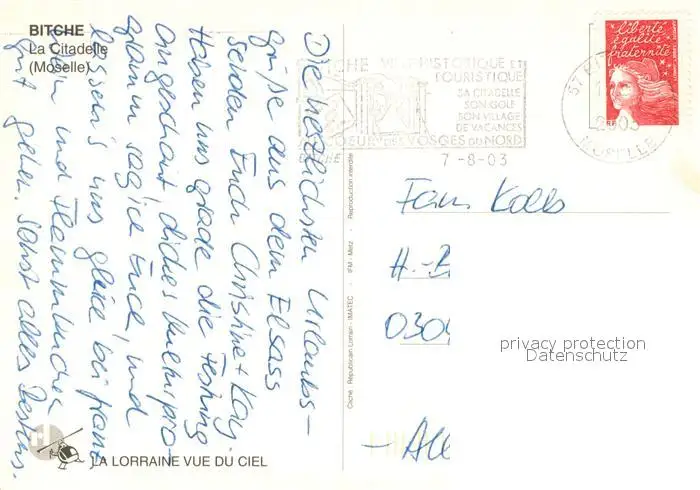 BITCHE
La Citadelle
(Moselle)
Die herzlichsten Urlaubs-
grüße aus dem Elsass
senden Euch Christine + Kay.
Haben uns grade die Festung
angeschaut, dickes Kulturpro-
gramm sag ice Euch, und
lassen's uns gleice bei franz.
und Flammkuchen
gut gehen. Sonst alles Bestens.
LA LORRAINE VUE DU CIEL
Cliché : Républicain Lorrain - IMATEC - IFM - Metz - Reproduction interdite
BITCHE VILLE HISTORIQUE ET
TOURISTIQUE
SA CITADELLE
SON GOLF
SON VILLAGE
DE VACANCES
COEUR DES VOSGES DU NORD
BITCHE
7-8-03
57 BITCHE
2003
MOSELLE
liberté
égalité
fraternité
Fam. Kolb
H.-B
0304
privacy protection
Datenschutz
- All